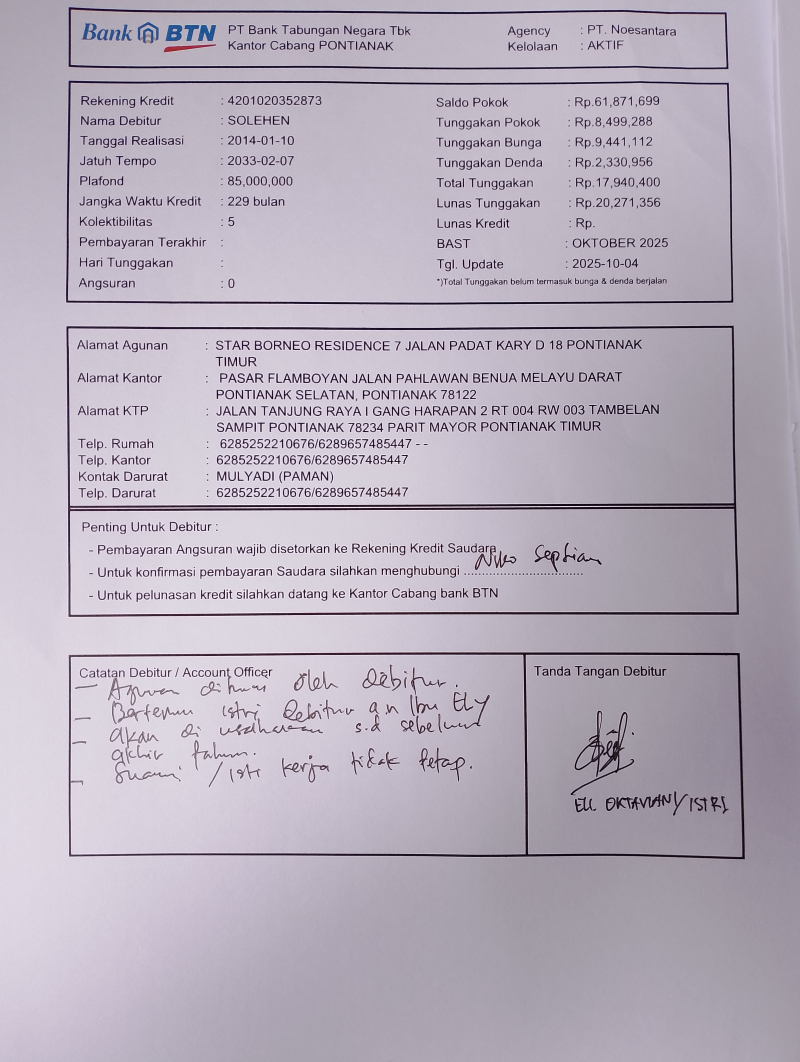 Bank BTN
PT Bank Tabungan Negara Tbk
Kantor Cabang PONTIANAK
Agency : PT. Noesantara
Kelolaan : AKTIF
Rekening Kredit : 4201020352873
Nama Debitur : SOLEHEN
Tanggal Realisasi : 2014-01-10
Jatuh Tempo : 2033-02-07
Plafond : 85,000,000
Jangka Waktu Kredit : 229 bulan
Kolektibilitas : 5
Pembayaran Terakhir :
Hari Tunggakan :
Angsuran : 0
Saldo Pokok : Rp.61,871,699
Tunggakan Pokok : Rp.8,499,288
Tunggakan Bunga : Rp.9,441,112
Tunggakan Denda : Rp.2,330,956
Total Tunggakan : Rp.17,940,400
Lunas Tunggakan : Rp.20,271,356
Lunas Kredit : Rp.
BAST : OKTOBER 2025
Tgl. Update : 2025-10-04
*)Total Tunggakan belum termasuk bunga & denda berjalan
Alamat Agunan : STAR BORNEO RESIDENCE 7 JALAN PADAT KARY D 18 PONTIANAK
TIMUR
Alamat Kantor : PASAR FLAMBOYAN JALAN PAHLAWAN BENUA MELAYU DARAT
PONTIANAK SELATAN, PONTIANAK 78122
Alamat KTP : JALAN TANJUNG RAYA I GANG HARAPAN 2 RT 004 RW 003 TAMBELAN
SAMPIT PONTIANAK 78234 PARIT MAYOR PONTIANAK TIMUR
Telp. Rumah : 6285252210676/6289657485447 - -
Telp. Kantor : 6285252210676/6289657485447
Kontak Darurat : MULYADI (PAMAN)
Telp. Darurat : 6285252210676/6289657485447
Penting Untuk Debitur :
- Pembayaran Angsuran wajib disetorkan ke Rekening Kredit Saudara
- Untuk konfirmasi pembayaran Saudara silahkan menghubungi Niko Septian
- Untuk pelunasan kredit silahkan datang ke Kantor Cabang bank BTN
Catatan Debitur / Account Officer
- Agunan dihuni oleh debitur.
- Bertemu istri debitur an Ibu Ely
- akan di usahakan s.d sebelum
akhir tahun.
- Suami / istri kerja tidak tetap.
Tanda Tangan Debitur
ELI OKTAVIAN/ISTRI